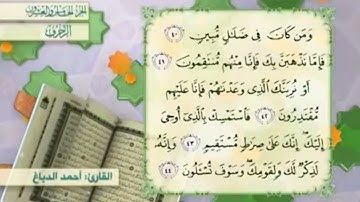 الجزء الخامس والعشرون
الزخرف
وَمَن كَانَ فِى ضَلَٰلٍ مُّبِينٍ ٤٠
فَإِمَّا نَذْهَبَنَّ بِكَ فَإِنَّا مِنْهُم مُّنتَقِمُونَ ٤١
أَوْ نُرِيَنَّكَ ٱلَّذِى وَعَدْنَٰهُمْ فَإِنَّا عَلَيْهِم
مُّقْتَدِرُونَ ٤٢ فَٱسْتَمْسِكْ بِٱلَّذِىٓ أُوحِىَ
إِلَيْكَ إِنَّكَ عَلَىٰ صِرَٰطٍ مُّسْتَقِيمٍ ٤٣ وَإِنَّهُۥ
لَذِكْرٌ لَّكَ وَلِقَوْمِكَ وَسَوْفَ تُسْـَٔلُونَ ٤٤
القارئ: أحمد الدباغ